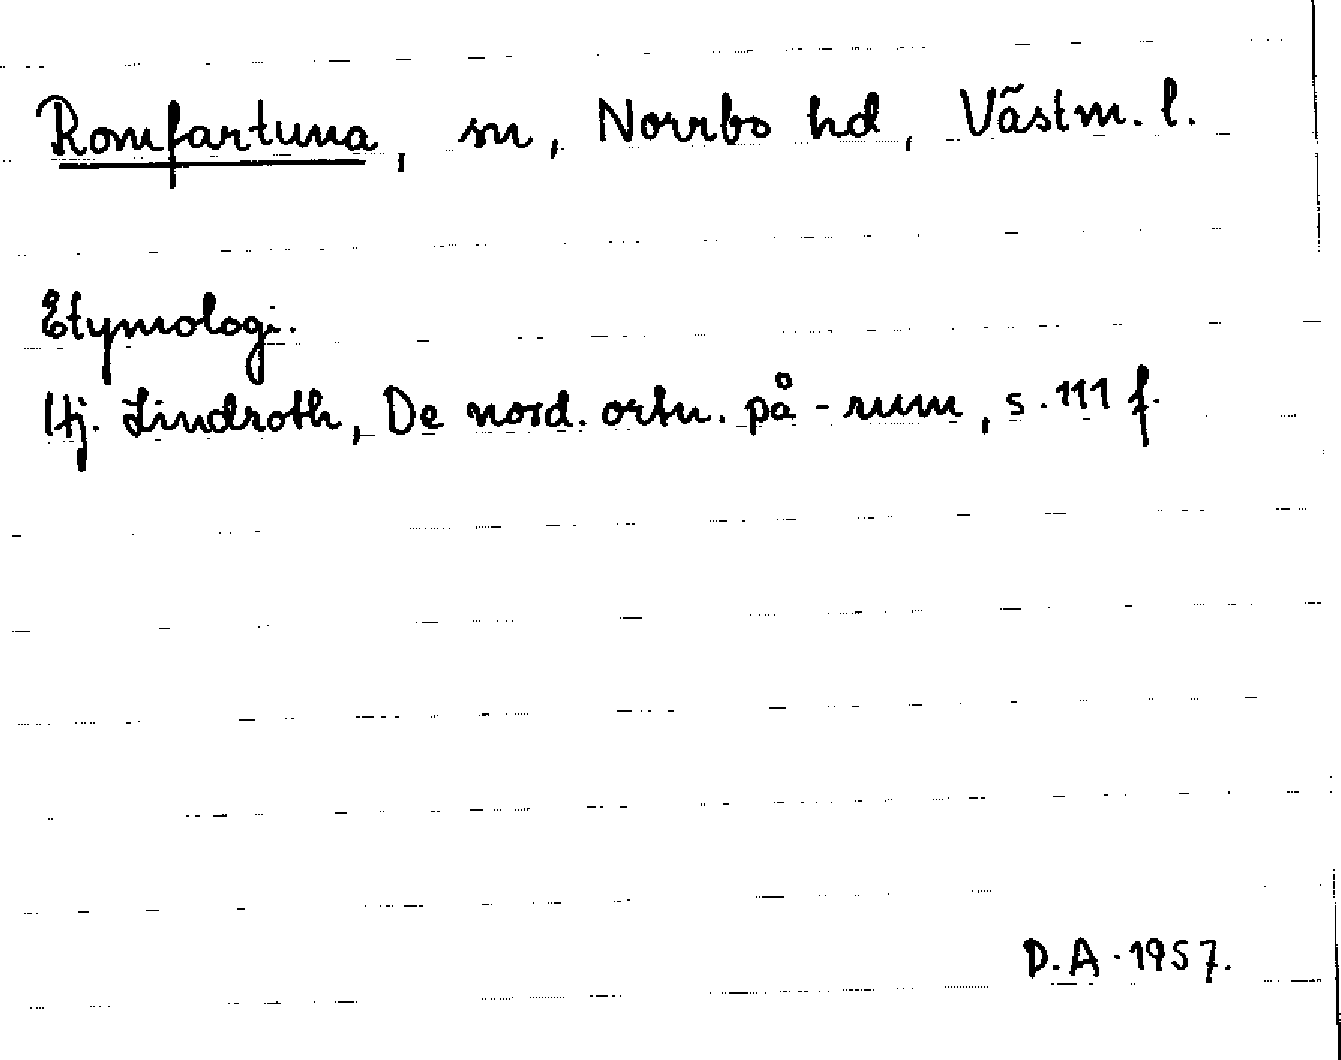 Romfartuna, sn, Norrbo hd, Västm. l.
Etymologi.
Hj. Lindroth, De nord. ortn. på -rum, s. 111 f.
D.A. 1957.